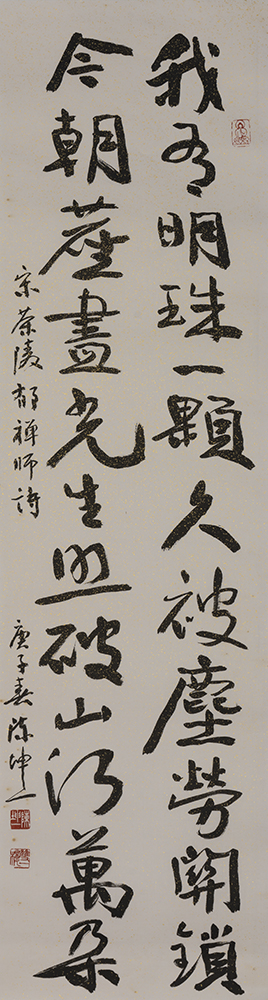 我有明珠一顆久被塵勞關鎖
今朝塵盡光生照破山河萬朵
宋茶陵郁禪師詩
庚子春陳坤一